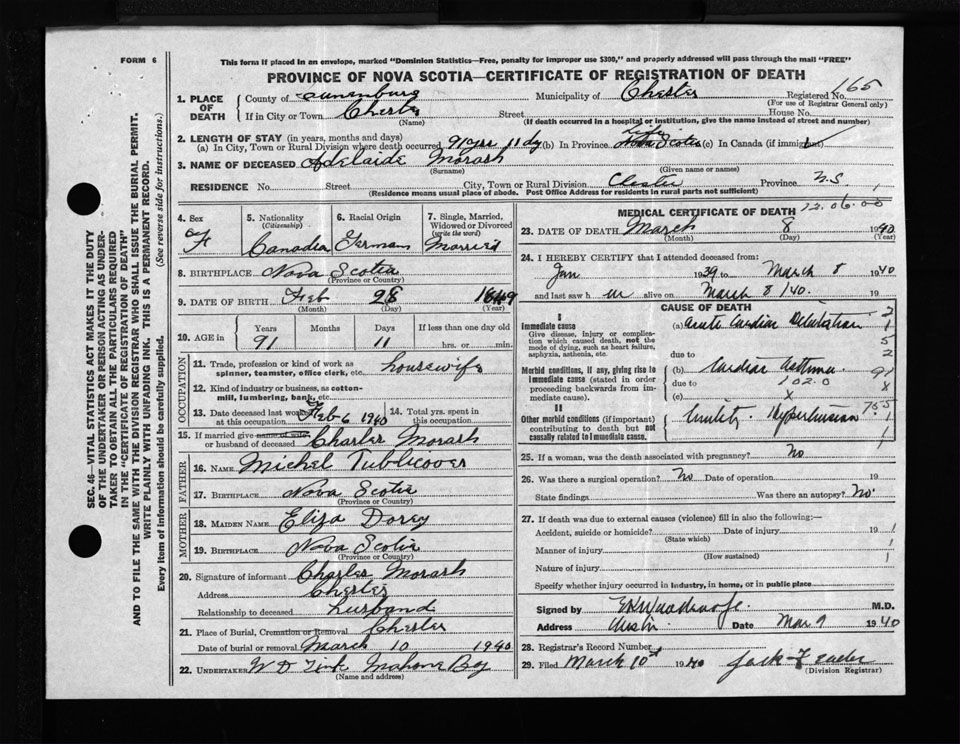 FORM 6
This form if placed in an envelope, marked "Dominion Statistics—Free, penalty for improper use $300," and properly addressed will pass through the mail "FREE"
PROVINCE OF NOVA SCOTIA—CERTIFICATE OF REGISTRATION OF DEATH
1. PLACE OF DEATH County of Lunenburg Municipality of Chester Registered No. 165
(For use of Registrar General only)
If in City or Town Chester Street House No.
(Name) (If death occurred in a hospital or institution, give the name instead of street and number)
2. LENGTH OF STAY (in years, months and days)
(a) In City, Town or Rural Division where death occurred 91 yrs 11 dy (b) In Province life Nova Scotia (c) In Canada (if immigrant)
3. NAME OF DECEASED Adelaide Morash
(Surname) (Given name or names)
RESIDENCE No. Street City, Town or Rural Division Chester Province N.S
(Residence means usual place of abode. Post Office Address for residents in rural parts not sufficient)
4. Sex F
5. Nationality (Citizenship) Canadian
6. Racial Origin German
7. Single, Married, Widowed or Divorced (write the word) Married
8. BIRTHPLACE Nova Scotia
(Province or Country)
9. DATE OF BIRTH Feb 28 1849
(Month) (Day) (Year)
10. AGE in Years 91 Months Days 11 If less than one day old hrs. or min.
OCCUPATION
11. Trade, profession or kind of work as spinner, teamster, office clerk, etc. housewife
12. Kind of industry or business, as cotton-mill, lumbering, bank, etc.
13. Date deceased last worked at this occupation Feb 6 1940
14. Total yrs. spent in this occupation
15. If married give name of wife or husband of deceased Charles Morash
FATHER
16. NAME Michel Publicover
17. BIRTHPLACE Nova Scotia
(Province or Country)
MOTHER
18. MAIDEN NAME Eliza Dorey
19. BIRTHPLACE Nova Scotia
(Province or Country)
20. Signature of informant Charles Morash
Address Chester
Relationship to deceased husband
21. Place of Burial, Cremation or Removal Chester
Date of burial or removal March 10 1940
22. UNDERTAKER W D Zink Mahone Bay
(Name and address)
MEDICAL CERTIFICATE OF DEATH 12.06.00
23. DATE OF DEATH March 8 1940
(Month) (Day) (Year)
24. I HEREBY CERTIFY that I attended deceased from:
Jan 1939 to March 8 1940
and last saw h er alive on March 8/40. 19
CAUSE OF DEATH
I
Immediate cause
Give disease, injury or complication which caused death, not the mode of dying, such as heart failure, asphyxia, asthenia, etc.
(a) Acute Cardiac Dilatation
due to
Morbid conditions, if any, giving rise to immediate cause (stated in order proceeding backwards from immediate cause).
(b) Cardiac Asthma
due to 102.0
(c) x
II
Other morbid conditions (if important) contributing to death but not causally related to immediate cause.
Senility. Hypertension
25. If a woman, was the death associated with pregnancy? No
26. Was there a surgical operation? No Date of operation 19
State findings Was there an autopsy? No.
27. If death was due to external causes (violence) fill in also the following:—
Accident, suicide or homicide? Date of injury 19
(State which)
Manner of injury
(How sustained)
Nature of injury
Specify whether injury occurred in industry, in home, or in public place
Signed by M.D.
Address Chester Date Mar 9 1940
28. Registrar's Record Number
29. Filed March 10 1940
(Division Registrar)
SEC. 46—VITAL STATISTICS ACT MAKES IT THE DUTY
OF THE UNDERTAKER OR PERSON ACTING AS UNDER-
TAKER TO OBTAIN ALL THE PARTICULARS REQUIRED
IN THE "CERTIFICATE OF REGISTRATION OF DEATH"
AND TO FILE THE SAME WITH THE DIVISION REGISTRAR WHO SHALL ISSUE THE BURIAL PERMIT.
WRITE PLAINLY WITH UNFADING INK. THIS IS A PERMANENT RECORD.
Every item of information should be carefully supplied. (See reverse side for instructions.)